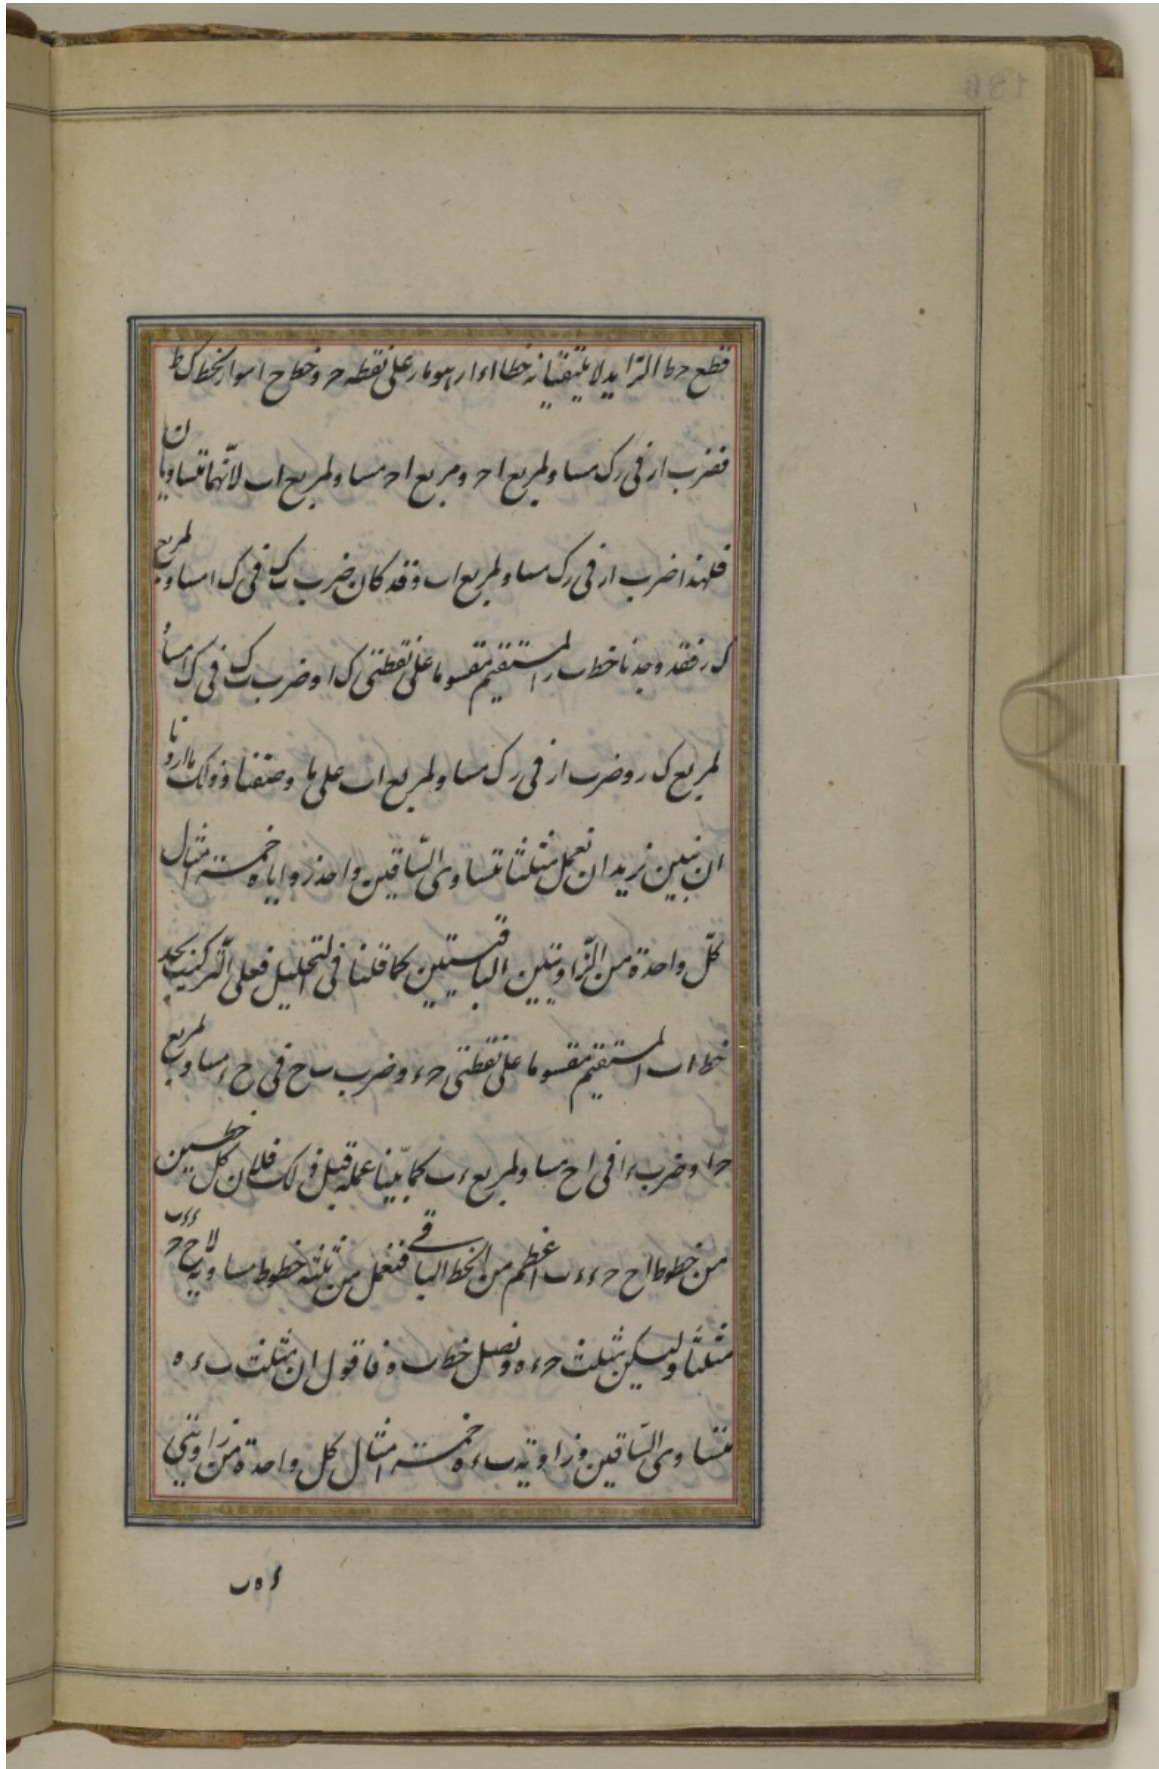 قطع حط الزايد لا يلتقيانه خطا ااء ار هو مار على نقطه ح وخط ح ا مواز لخط ك ط
فضرب ار فى رك مساو لمربع اح ومربع اح مساو لمربع اب لانهما متساويان
فلهذا ضرب ار فى رك مساو لمربع اب وقد كان ضرب ب ك فى ك ا مساو لمربع
ك ر فقد وجدنا خط ب ر المستقيم مقسوما على نقطتى ك ا وضرب ب ك فى ك ا مساو
لمربع ك ر وضرب ار فى رك مساو لمربع اب على ما وصفنا وذلك ما اردنا
ان نبين نريد ان نعمل مثلثا متساوى الساقين واحد زواياه خمسة امثال
كل واحدة من الزاويتين الباقيتين كما قلنا فى التحليل فعلى التركيب نجد
خط اب المستقيم مقسوما على نقطتى ح ء وضرب ب ح فى ح ا مساو لمربع
ح ا وضرب ء ا فى ا ح مساو لمربع ء ب كما بينا عمله قبل ذلك فلان كل خطين
من خطوط اح ح ء ء ب اعظم من الخط الباقى فنعمل من ثلثة خطوط مساوية لاح ح ء ء ب
مثلثا وليكن مثلث ح ء ه ونصل خط ب ه فاقول ان مثلث ب ء ه
متساوى الساقين وزاوية ب ء ه خمسة امثال كل واحدة من زاويتى
ء ه ب